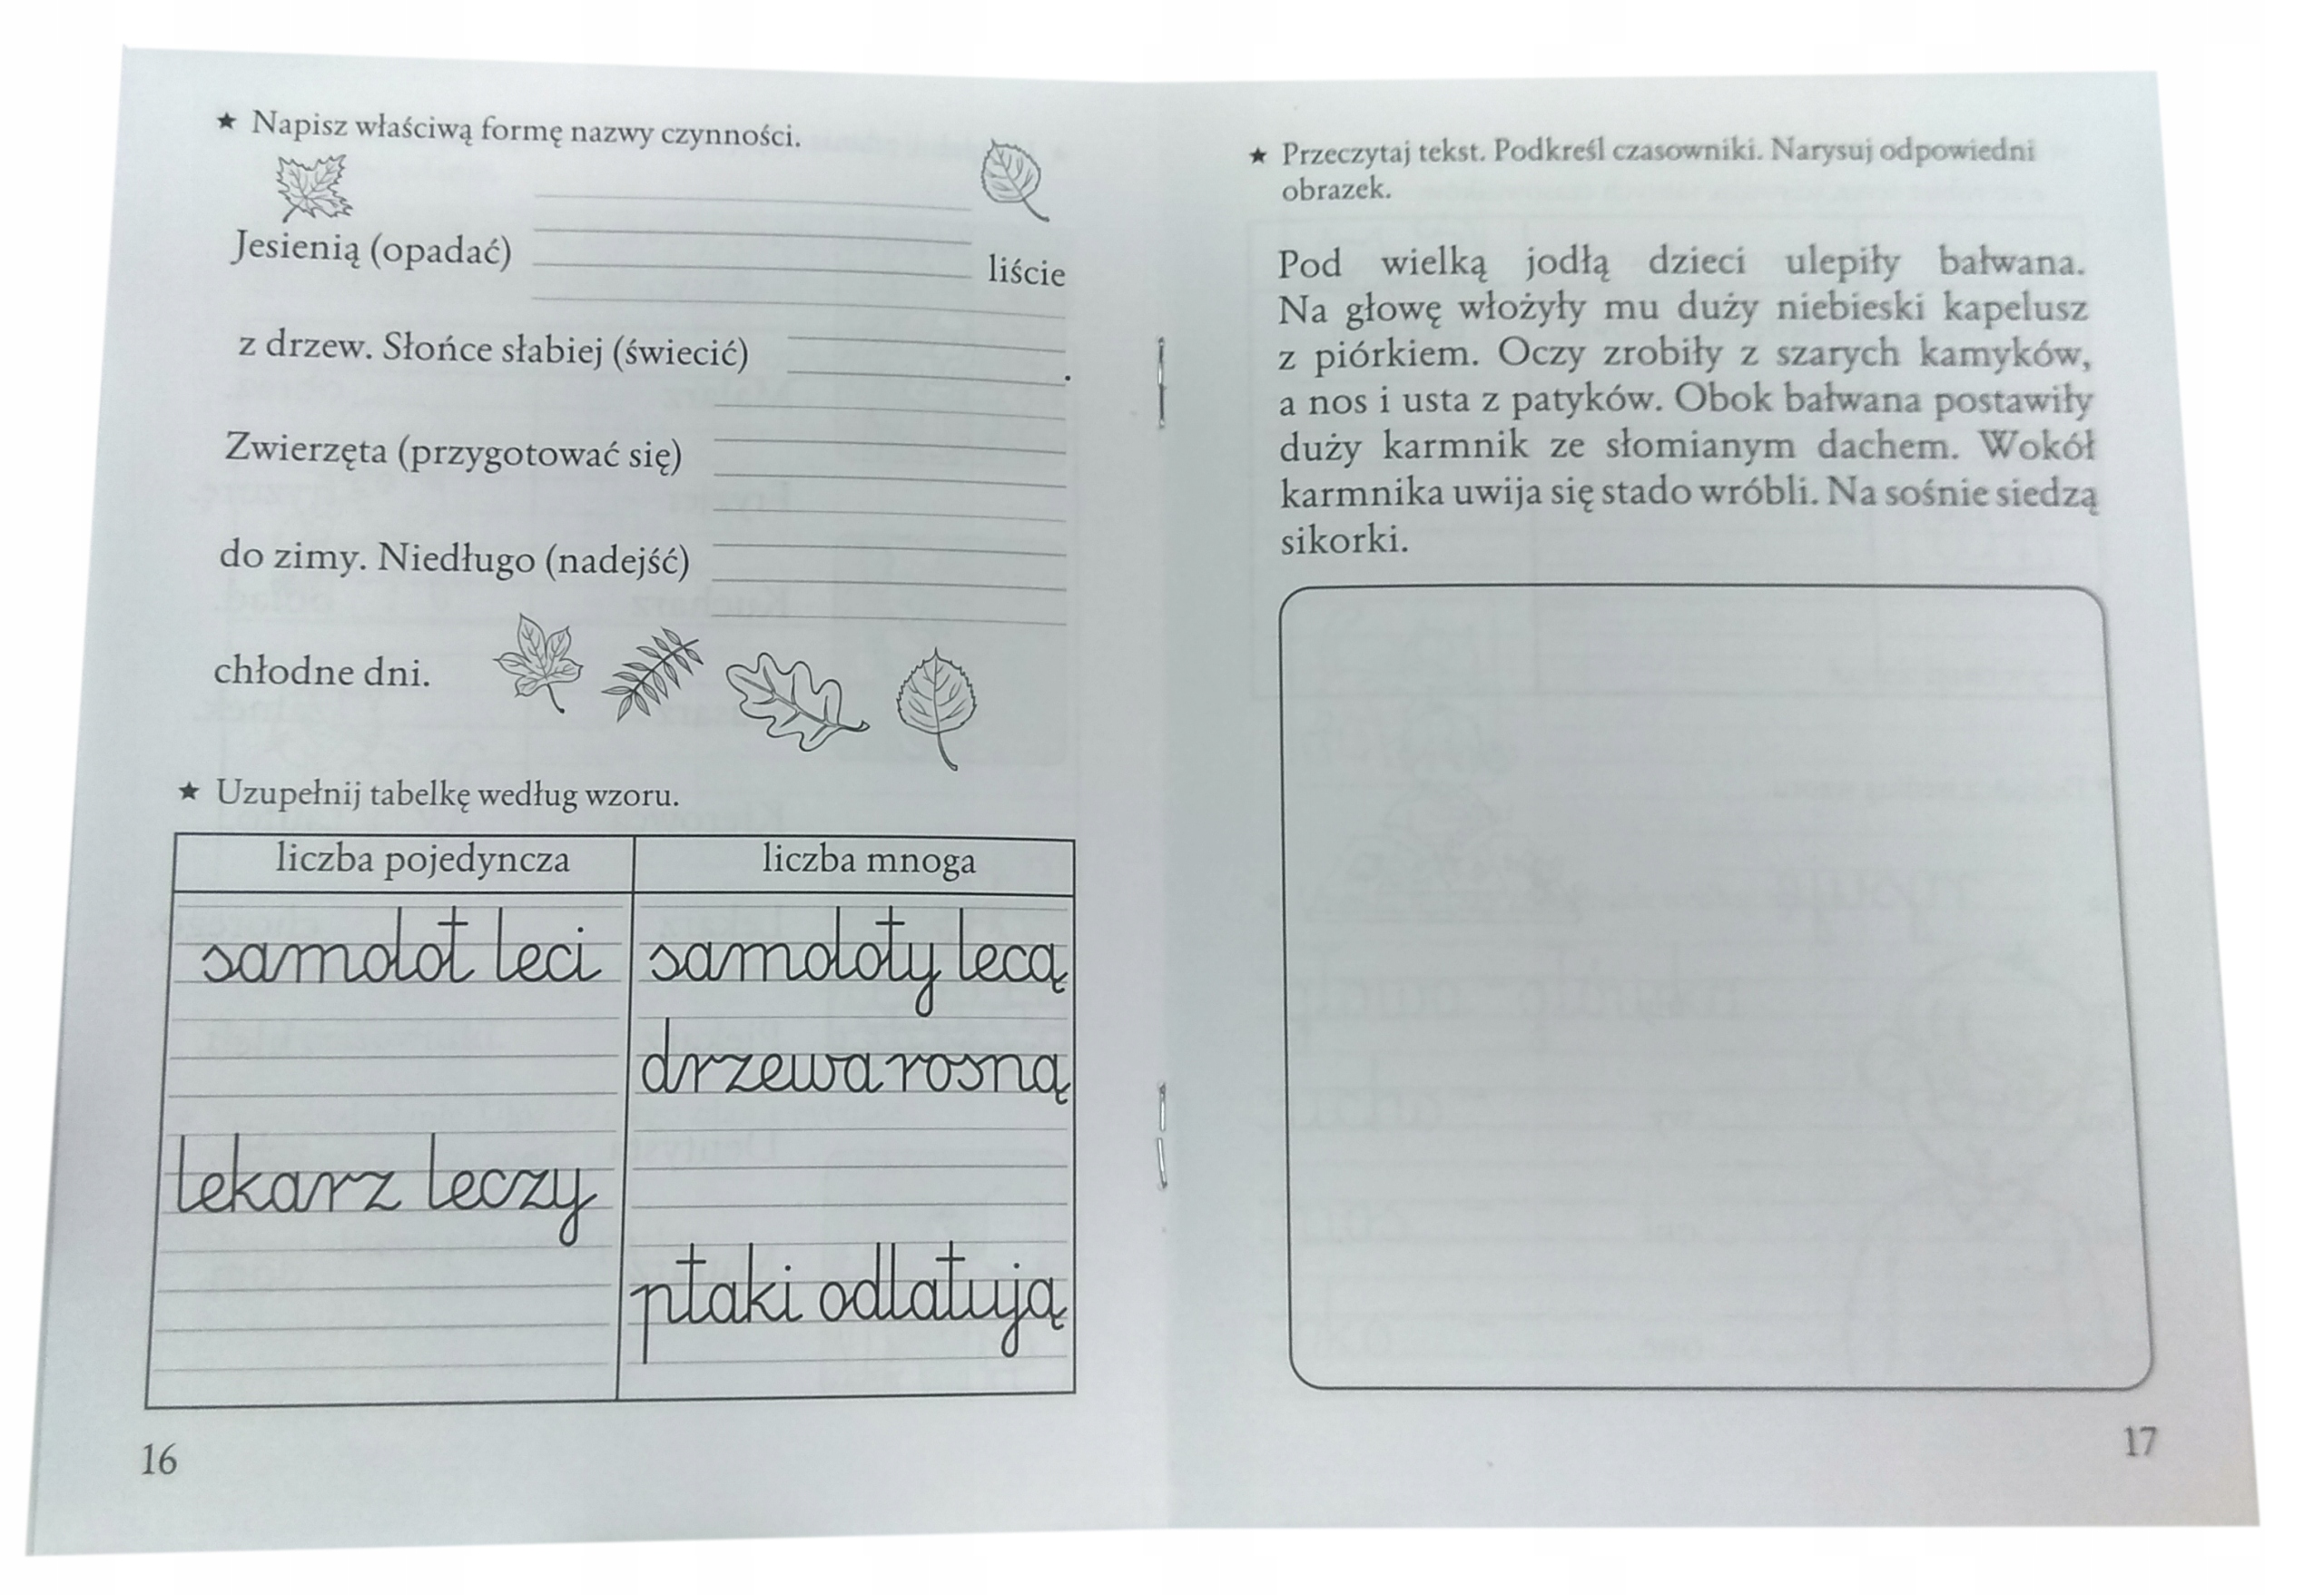 ★ Napisz właściwą formę nazwy czynności.
Jesienią (opadać) liście
z drzew. Słońce słabiej (świecić) .
Zwierzęta (przygotować się)
do zimy. Niedługo (nadejść)
chłodne dni.
★ Uzupełnij tabelkę według wzoru.
liczba pojedyncza liczba mnoga
samolot leci samoloty lecą
drzewa rosną
lekarz leczy
ptaki odlatują
16
★ Przeczytaj tekst. Podkreśl czasowniki. Narysuj odpowiedni
obrazek.
Pod wielką jodłą dzieci ulepiły bałwana.
Na głowę włożyły mu duży niebieski kapelusz
z piórkiem. Oczy zrobiły z szarych kamyków,
a nos i usta z patyków. Obok bałwana postawiły
duży karmnik ze słomianym dachem. Wokół
karmnika uwija się stado wróbli. Na sośnie siedzą
sikorki.
17